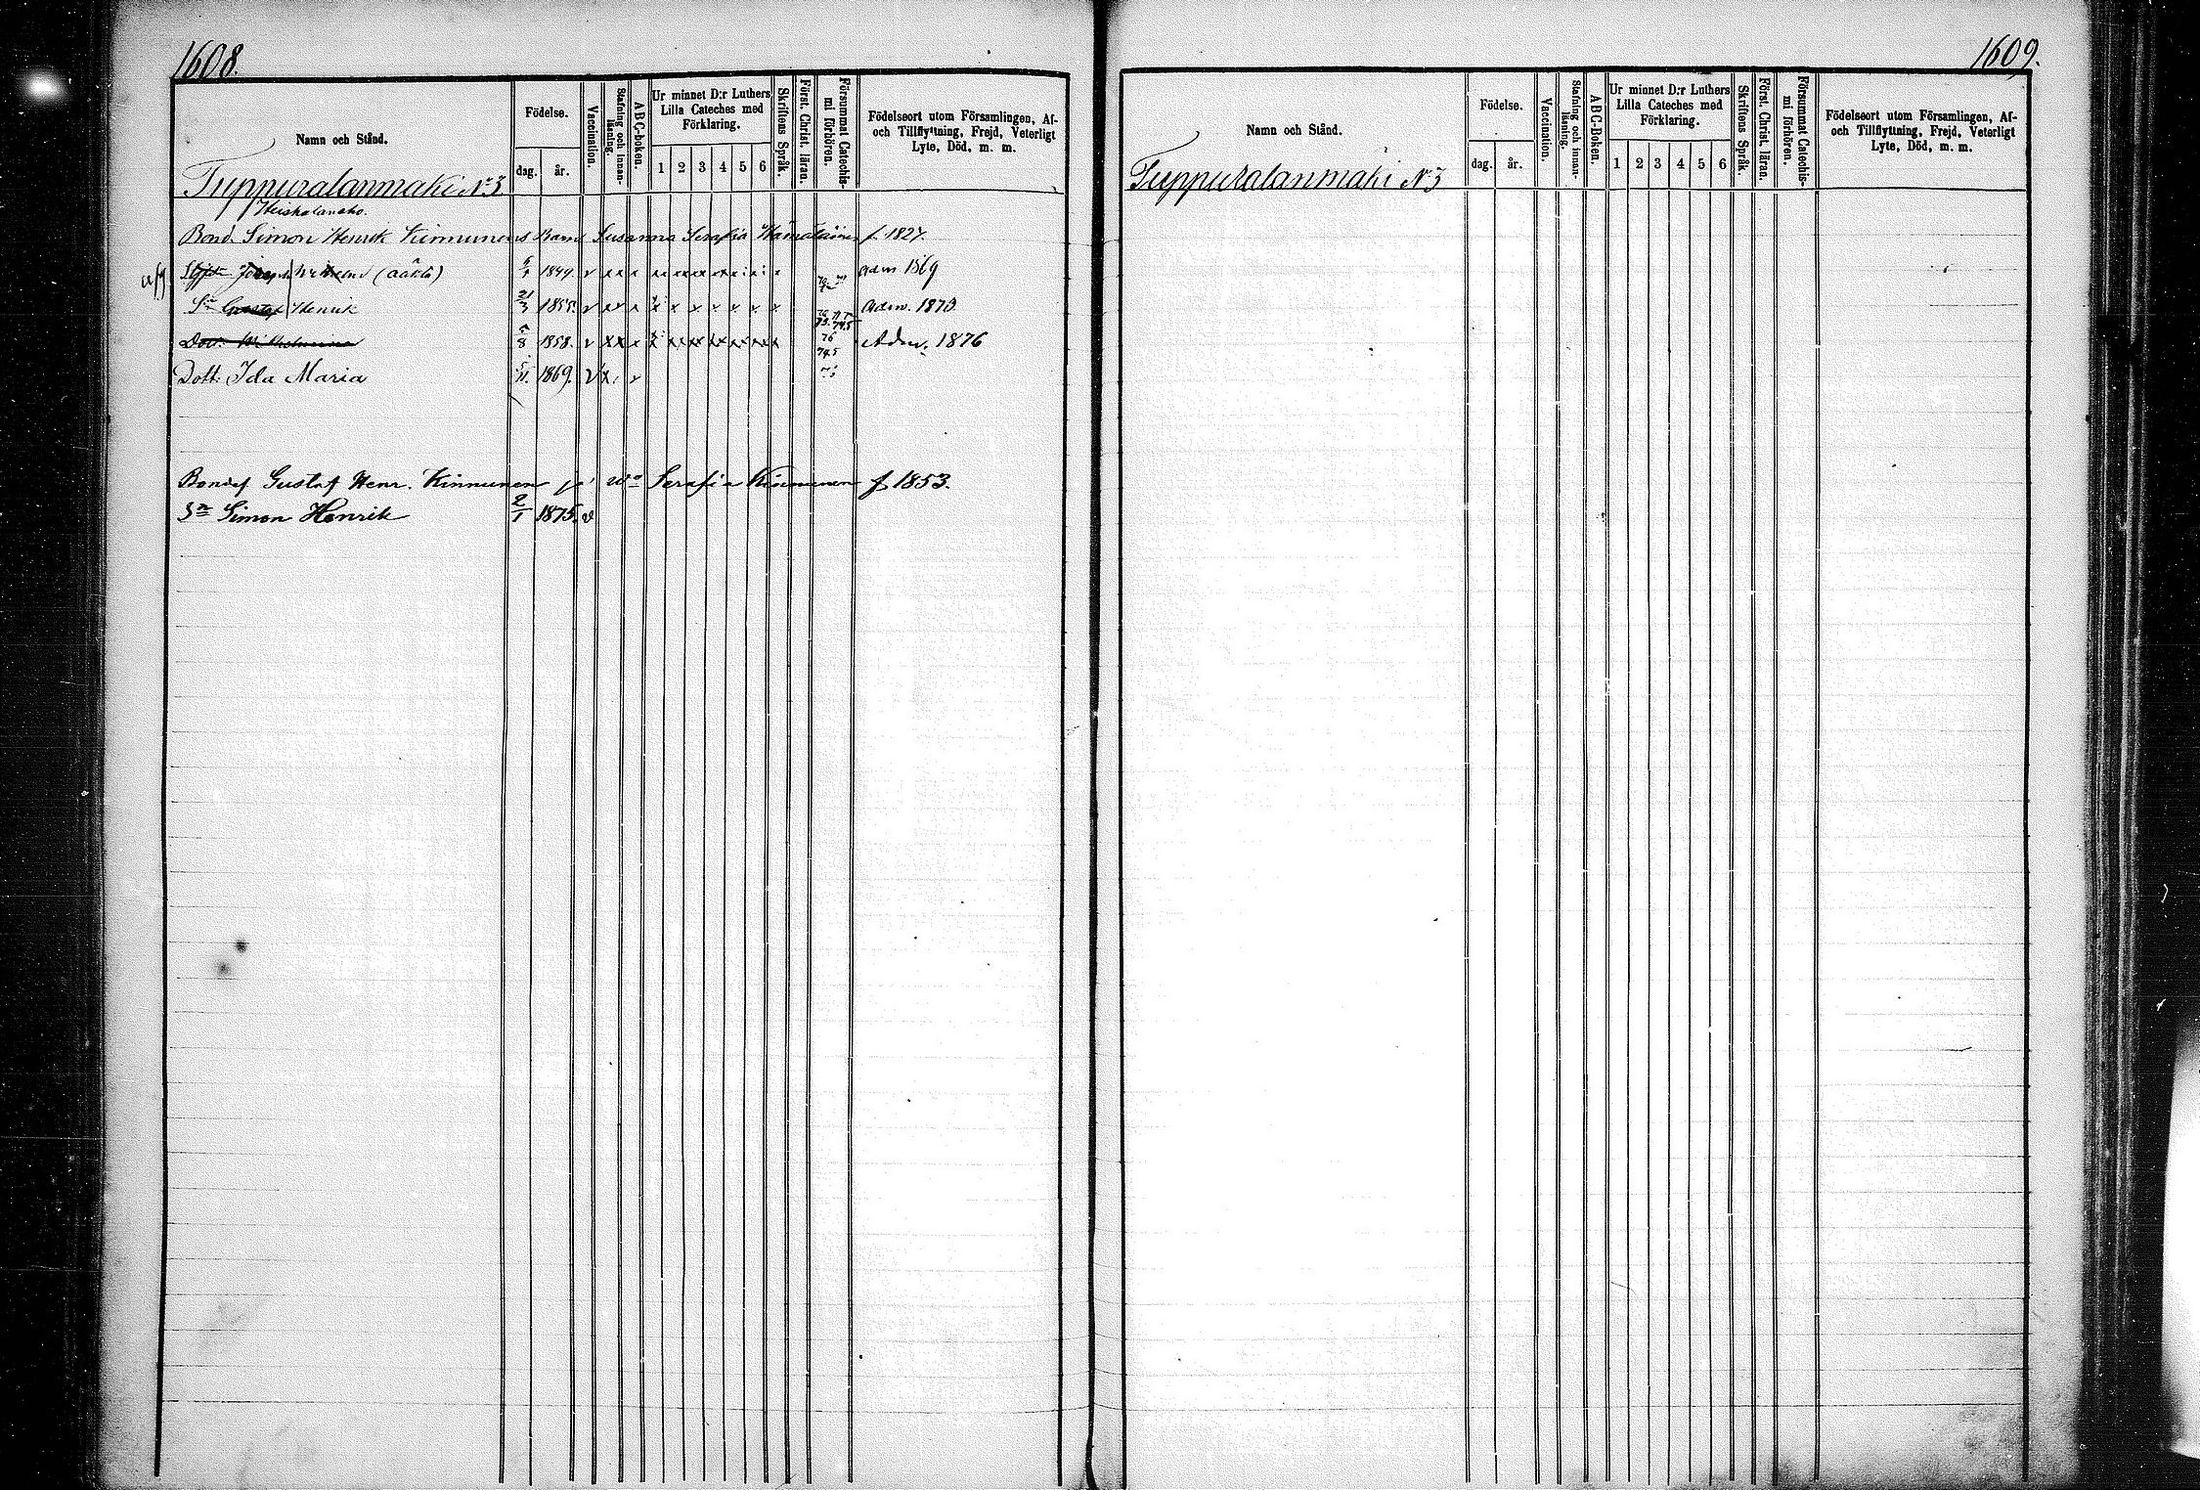 1608.
Namn och Stånd.
Födelse.
dag.
år.
Vaccination.
Stafning och innan-
läsning.
ABC-boken.
Ur minnet D:r Luthers
Lilla Cateches med
Förklaring.
1 2 3 4 5 6
Skriftens Språk.
Först. Christ. läran.
Försummat Catechis-
mi förhören.
Födelseort utom Församlingen, Af-
och Tillflyttning, Frejd, Veterligt
Lyte, Död, m. m.
Tuppuralanmäki No 3
Heiskalanaho.
Bond. Simon Henrik Kinnunens Barn Susanna Serafia Hämäläinen f. 1827.
Joseph Wilhelm 1849 v Adm 1869
Sn Gustaf Henrik 21/3 1855. v Adm. 1873
Dott. Wilhelmina 5/8 1858. v 76 Adm. 1876
Dott. Ida Maria 5/11. 1869. v
Bondes Gustaf Henr. Kinnunen Serafia Kinnunen f 1853.
Sn Simon Henrik 2/1 1875. v
1609.
Namn och Stånd.
Födelse.
dag.
år.
Vaccination.
Stafning och innan-
läsning.
ABC-Boken.
Ur minnet D:r Luthers
Lilla Cateches med
Förklaring.
1 2 3 4 5 6
Skriftens Språk.
Först. Christ. läran.
Försummat Catechis-
mi förhören.
Födelseort utom Församlingen, Af-
och Tillflyttning, Frejd, Veterligt
Lyte, Död, m. m.
Tuppuralanmäki No 3